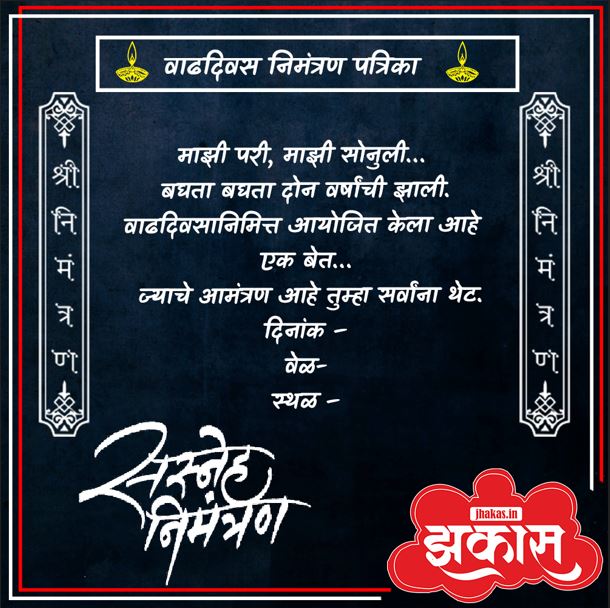 वाढदिवस निमंत्रण पत्रिका
माझी परी, माझी सोनुली...
बघता बघता दोन वर्षांची झाली.
वाढदिवसानिमित्त आयोजित केला आहे
एक बेत...
ज्याचे आमंत्रण आहे तुम्हा सर्वांना थेट.
दिनांक -
वेळ-
स्थळ -
श्री
नि
मं
त्र
ण
श्री
नि
मं
त्र
ण
सस्नेह
निमंत्रण
jhakas.in
झकास